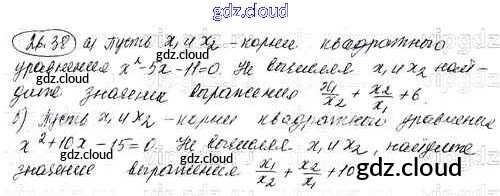 gdz.cloud
26.38 а) Пусть x₁ и x₂ - корни квадратного
gdz.cloud gdz.cloud
уравнения x² - 5x - 11 = 0. Не вычисляя x₁ и x₂ най-
дите значение выражения x₁/x₂ + x₂/x₁ + 6.
gdz.cloud
б) Пусть x₁ и x₂ - корни квадратного уравнения
x² + 10x - 15 = 0. Не вычисляя x₁ и x₂, найдите
значение выражения x₁/x₂ + x₂/x₁ + 10
gdz.cloud gdz.cloud